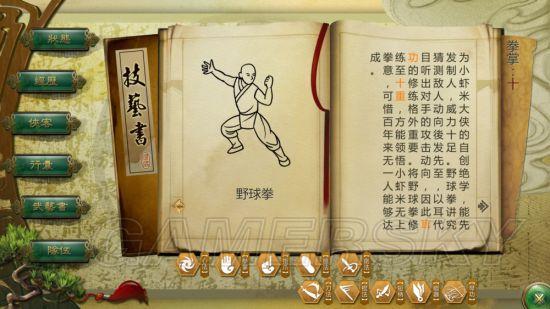 狀態
經歷
俠客
行囊
武藝書
隊伍
技藝書
野球拳
拳掌：十
为小虾米大侠的自创绝学，能先
发制人，威力十足。野球拳讲究
猜测敌人动向後发先至，以耳代
目听出对手的攻击动向，因此耳
功的修练格外重要。将野球拳修
练至十重，方能领悟小虾米无上
拳意，可惜百年来无一人能够达
成。
GAMERSKY